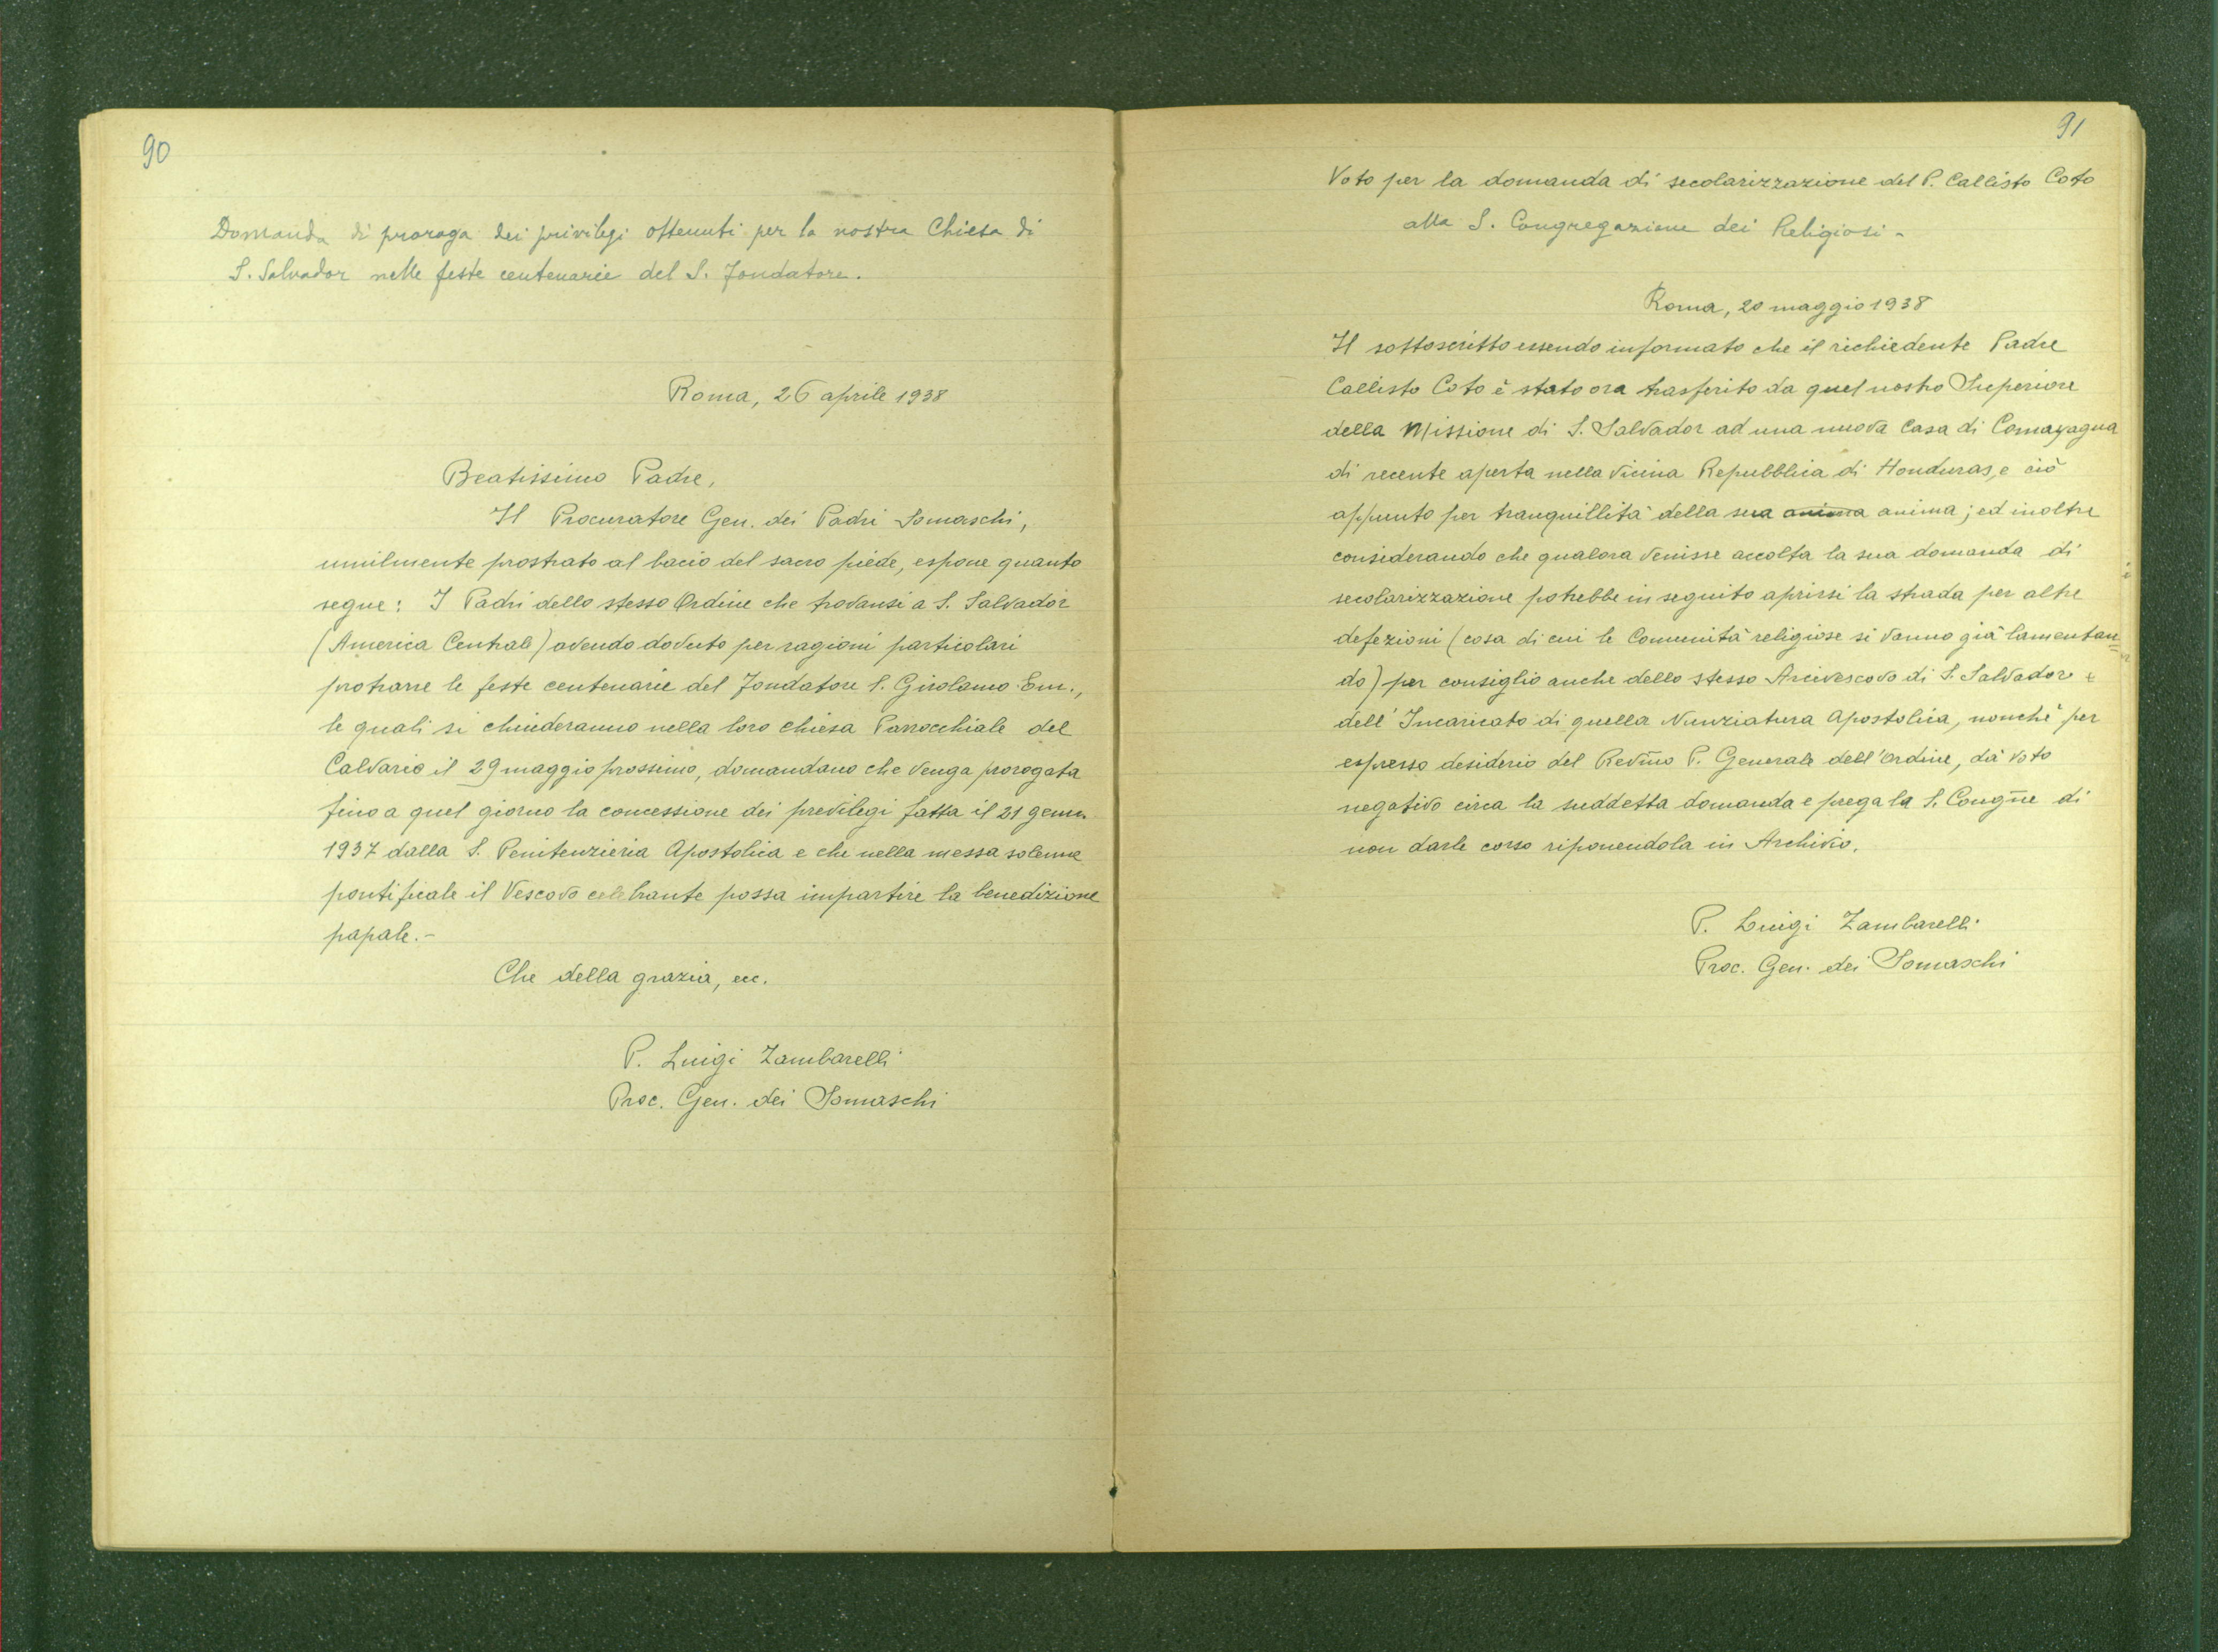 90
Domanda di proroga dei privilegi ottenuti per la nostra Chiesa di
S. Salvador nelle feste centenarie del S. Fondatore.
Roma, 26 aprile 1938
Beatissimo Padre,
Il Procuratore Gen. dei Padri Somaschi,
umilmente prostrato al bacio del sacro piede, espone quanto
segue: I Padri dello stesso Ordine che trovansi a S. Salvador
(America Centrale) avendo dovuto per ragioni particolari
protrarre le feste centenarie del Fondatore S. Girolamo Em.,
le quali si chiuderanno nella loro chiesa Parrocchiale del
Calvario il 29 maggio prossimo, domandano che venga prorogata
fino a quel giorno la concessione dei previlegi fatta il 21 genn.
1937 dalla S. Penitenzieria Apostolica e che nella messa solenne
pontificale il Vescovo celebrante possa impartire la benedizione
papale.-
Che della grazia, ecc.
P. Luigi Zambarelli
Proc. Gen. dei Somaschi
91
Voto per la domanda di secolarizzazione del P. Callisto Coto
alla S. Congregazione dei Religiosi -
Roma, 20 maggio 1938
Il sottoscritto essendo informato che il richiedente Padre
Callisto Coto è stato ora trasferito da quel nostro Superiore
della Missione di S. Salvador ad una nuova Casa di Comayagua
di recente aperta nella vicina Repubblica di Honduras, e ciò
appunto per tranquillità della sua anima anima; ed inoltre
considerando che qualora venisse accolta la sua domanda di
secolarizzazione potrebbe in seguito aprirsi la strada per altre
defezioni (cosa di cui le Comunità religiose si vanno già lamentan=
do) per consiglio anche dello stesso Arcivescovo di S. Salvador e
dell'Incaricato di quella Nunziatura Apostolica, nonchè per
espresso desiderio del Revm̃o P. Generale dell'Ordine, dà voto
negativo circa la suddetta domanda e prega la S. Congñe di
non darle corso riponendola in Archivio.
P. Luigi Zambarelli
Proc. Gen. dei Somaschi